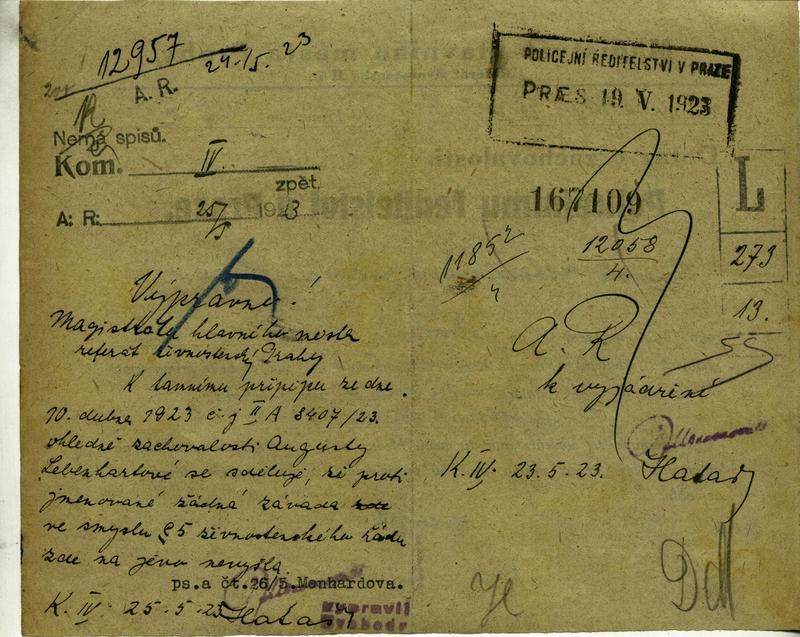 12957 24/5. 23
A. R.
Nemá spisů.
Kom. IV
zpět.
A: R: 25/5 1923
Výpravně!
Magistrátu hlavního města
referát živnostenský Prahy
K tamnímu přípipu ze dne
10. dubna 1923 č j II A 8407/23.
ohledně zachovalosti Augusty
Lebenhartové se sděluje, že proti
jmenované žádná závada zde
ve smyslu § 5 živnostenského řádu
zde na jevo nevyšla.
ps.a čt.26/5.Menhardova.
K. IV 25-5-23 Hatas
Vypravil
Svoboda
POLICEJNÍ ŘEDITELSTVÍ V PRAZE
PRÆS 19. V. 1923
167109
L
273
13.
55
11852/4
12058
4.
A. R
k vyjádření
K. IV. 23.5-23. Hatas